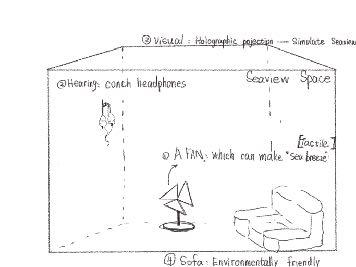 ③ Visual : Holographic pojection — Simulate Seaview
Seaview Space
② Hearing: conch headphones
[tactile]
① A FAN: which can make "sea breeze"
④ Sofa : Environmentally friendly